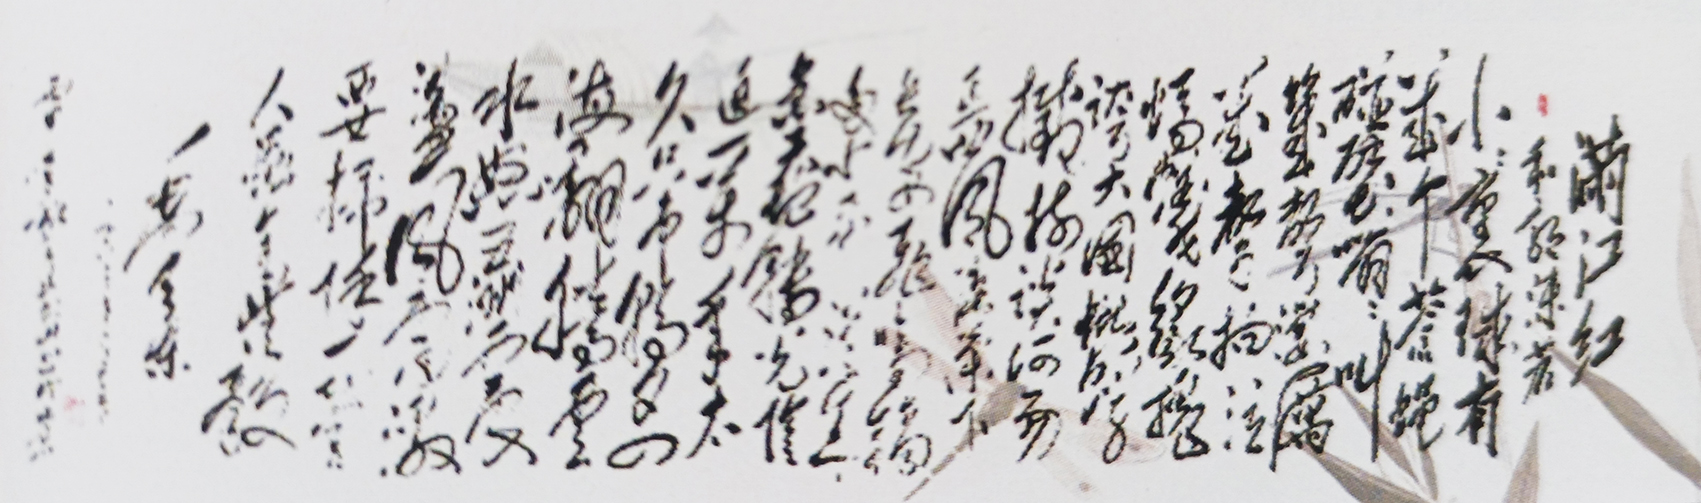 满江红
和郭沫若
小小寰球有
几个苍蝇
碰壁嗡嗡叫
几声凄厉
几声抽泣
蚂蚁缘槐
夸大国蚍蜉
撼树谈何易
正西风落叶下
长安飞鸣镝
多少事从来
急天地转光阴
迫一万年太
久只争朝夕四
海翻腾云
水怒五洲震
荡风雷激
要扫除一切害
人虫全无敌
毛泽东